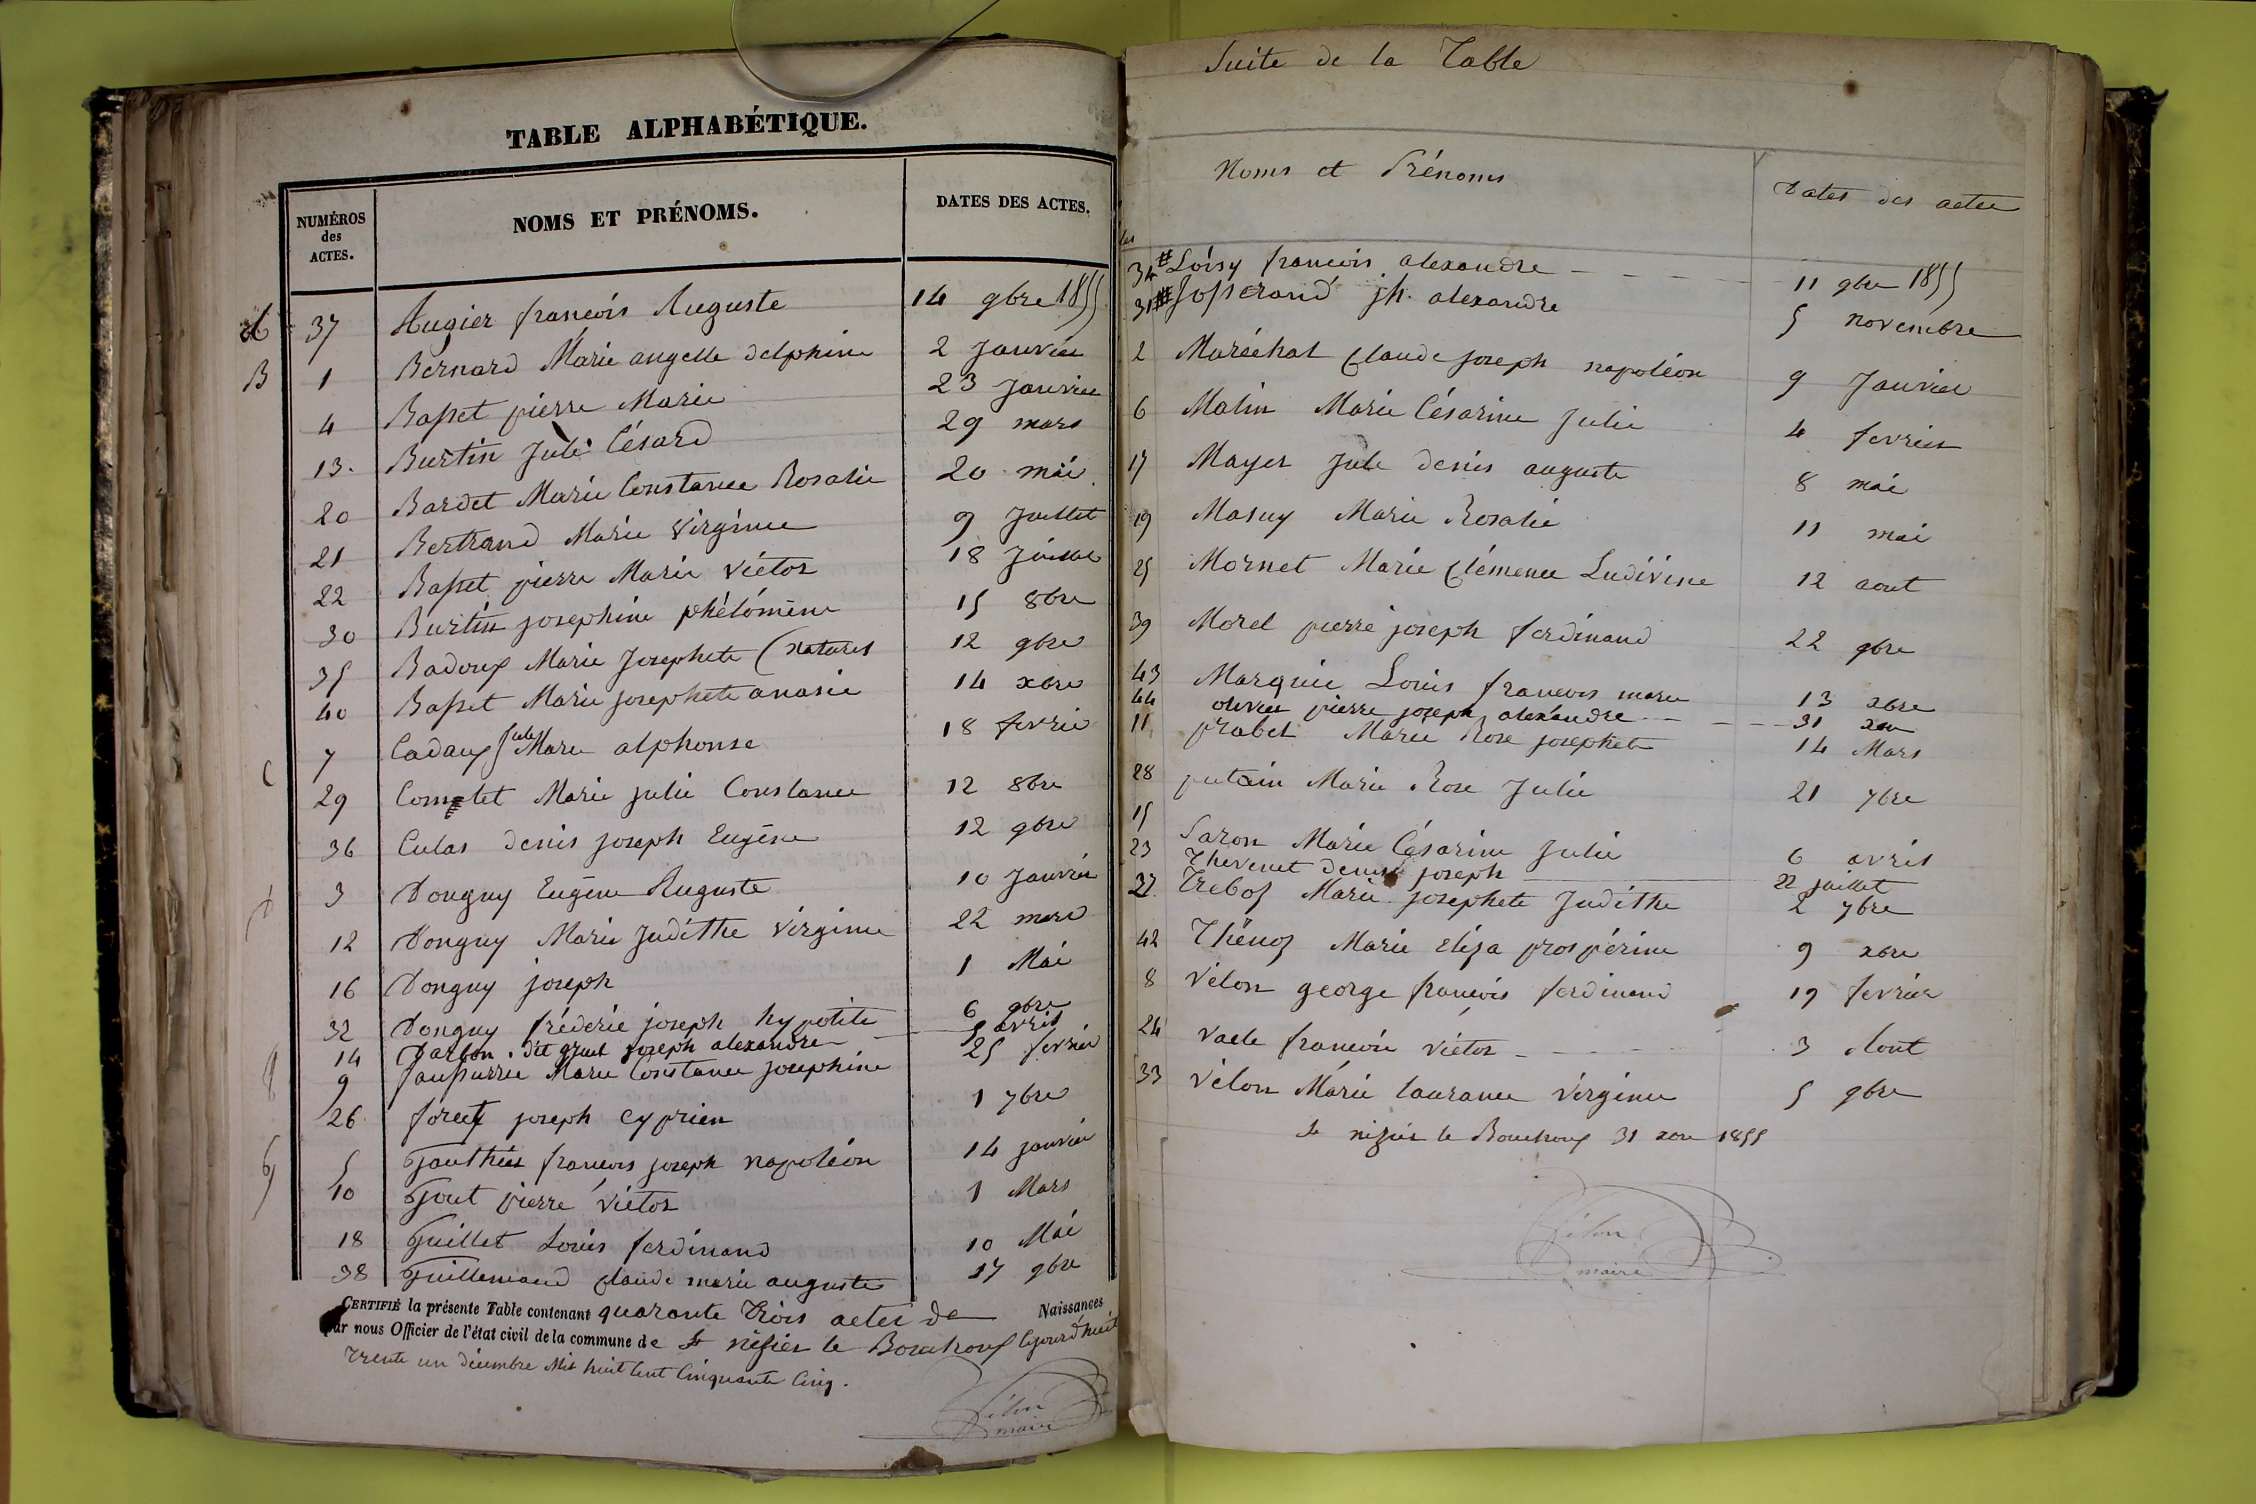 TABLE ALPHABÉTIQUE.
NUMÉROS des ACTES. NOMS ET PRÉNOMS. DATES DES ACTES.
A 37 Augier françois Auguste 14 9bre 1855
B 1 Bernard Marie angelle delphine 2 Janvier
4 Basset pierre Marie 23 Janvier
13. Burtin Jule Césard 29 mars
20 Bardet Marie Constance Rosalie 20 mai
21 Bertrand Marie Virginie 9 Juillet
22 Basset pierre Marie Victor 18 Juillet
30 Burtin josephine phélomène 15 8bre
35 Badoux Marie Josephete (naturel 12 9bre
40 Basset Marie josephete anasie 14 xbre
7 Cadaux Jule Marie alphonse 18 fevrier
C 29 Comtet Marie julie Constance 12 8bre
36 Culas denis joseph Eugène 12 9bre
D 3 Donguy Eugène Auguste 10 Janvier
12 Donguy Marie Judithe Virginie 22 mars
16 Donguy joseph 1 Mai
32 Donguy fréderic joseph hypolite 6 9bre
14 Darbon dit joseph alexandre 5 avril
9 Marie Constance josephine 25 fevrier
26 foret joseph cyprien 1 7bre
G 5 Gauthier francois joseph napoléon 14 janvier
10 Gout pierre Victor 1 Mars
18 Guillet Louis ferdinand 10 Mai
38 Guillemaud claude marie auguste 17 9bre
CERTIFIÉ la présente Table contenant quarante trois actes de Naissances
par nous Officier de l'état civil de la commune de St nizier le Bouchoux cejourd'huit
trente un décembre Mil huit Cent Cinquante Cinq.
Vélon
maire
Suite de la Table
Noms et Prénoms Dates des actes
34 Loisy francois alexandre 11 9bre 1855
31 Josserand jh. alexandre 5 novembre
2 Maréchal Claude joseph napoléon 9 Janvier
6 Malin Marie Césarine Julie 4 fevrier
17 Mayer Jule denis auguste 8 mai
19 Masuy Marie Rosalie 11 mai
25 Mornet Marie Clémence Ludivine 12 aout
39 Morel pierre joseph ferdinand 22 9bre
43 Marquie Louis francois marie 13 xbre
44 olivier pierre joseph alexandre 31 xbre
11 prabel Marie Rose josephete 14 Mars
28 putain Marie Rose Julie 21 7bre
15 Saron Marie Césarine Julie 6 avril
23 Thevenet denis joseph 22 juillet
27 Treboz Marie josephete Judithe 2 7bre
42 Thénoz Marie eliza prospérine 9 xbre
8 Vélon george françois ferdinand 19 fevrier
24 Vaele françois Victor 3 Aout
33 Vélon Marie laurance Virginie 5 9bre
St nizier le Bouchoux 31 xbre 1855
Vélon
maire